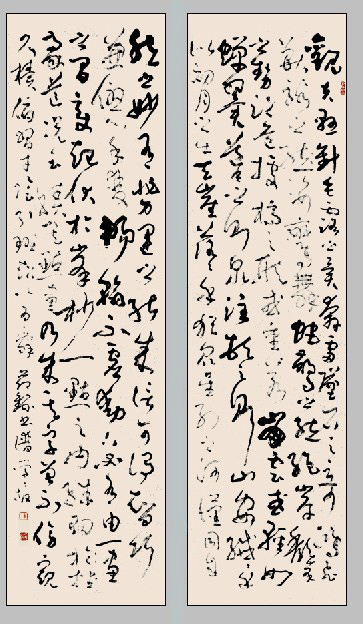 觀夫懸針垂露之異奔雷墜石之奇鴻飛
獸駭之姿鸞舞蛇驚之態絕岸頹峰
之勢臨危據槁之形或重若崩雲或輕如
蟬翼導之則泉注頓之則山安纖纖乎
似初月之出天崖落落乎猶眾星之列河漢同自
然之妙有非力運之能成信可謂智巧
兼優心手雙暢翰不虛動下必有由一畫
之間變起伏於峰杪一點之內殊衄挫於
毫芒況云積其點畫乃成其字曾不傍窺
尺牘俯習寸陰引班超以為辭 書譜